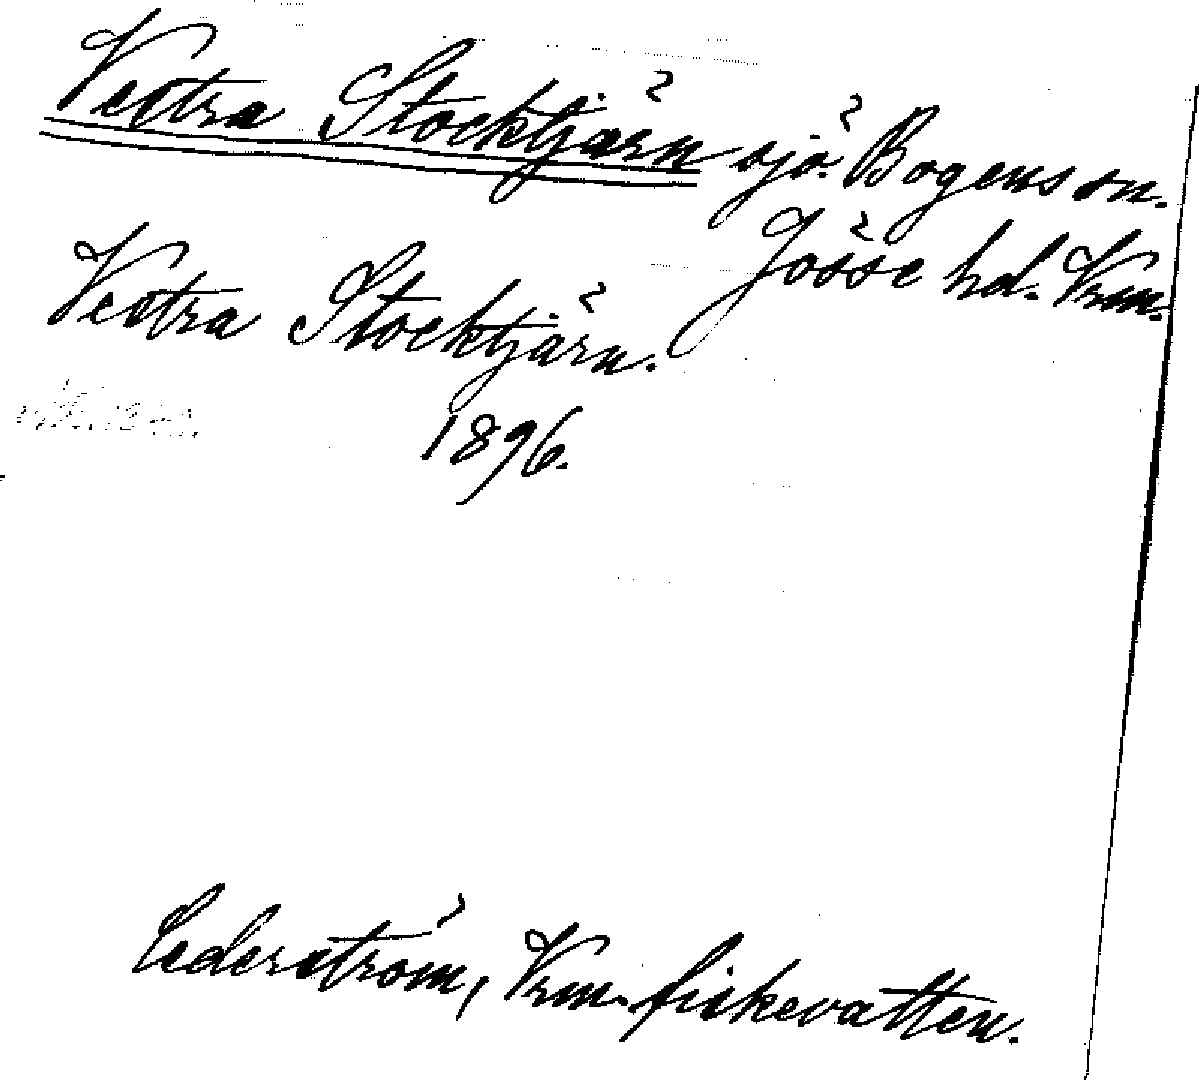 Vestra Stocktjärn sjö. Bogens sn.
Jösse hd. Vrm.
Vestra Stocktjärn.
1896.
Cederström, Vrm. fiskevatten.